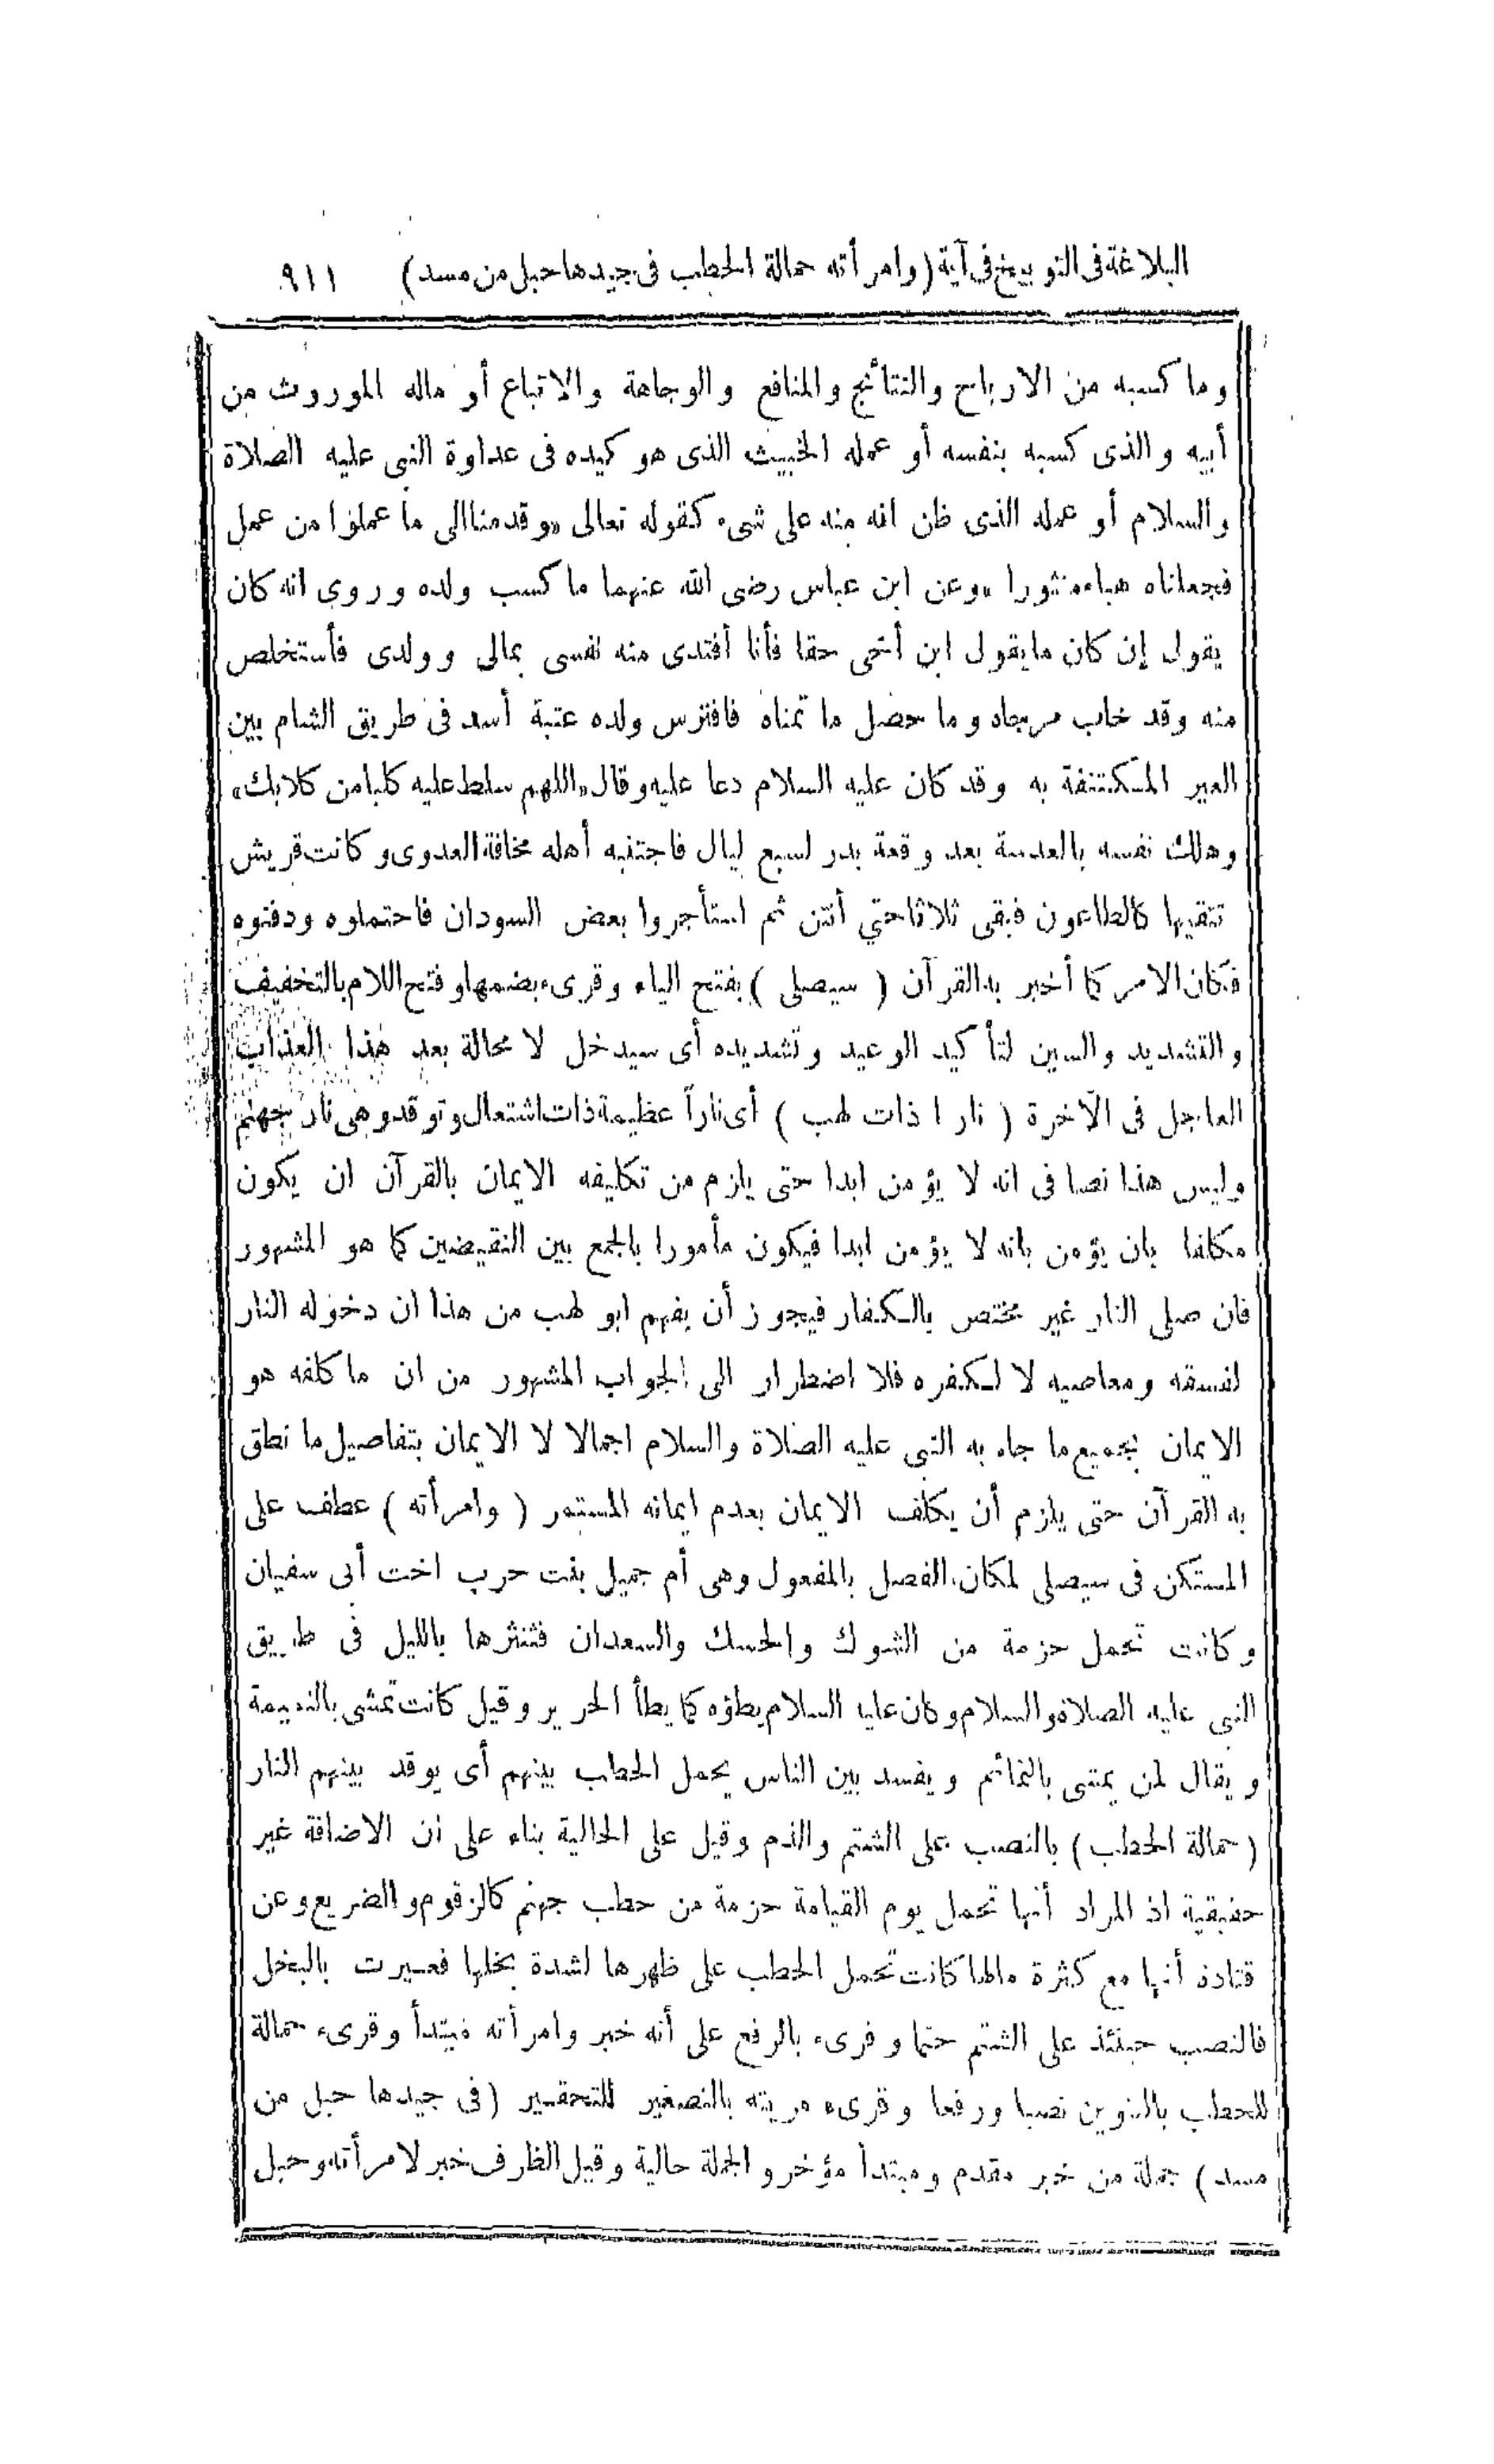 البلاغة فى التوبيخ فى آية (وامرأته حمالة الحطب فى جيدها حبل من مسد) ٩١١
وما كسبه من الارباح والنتائج والمنافع والوجاهة والاتباع أو ماله الموروث من
أبيه والذى كسبه بنفسه أو عمله الخبيث الذى هو كيده فى عداوة النبى عليه الصلاة
والسلام أو عمله الذى ظن انه منه على شىء كقوله تعالى «وقدمنا الى ما عملوا من عمل
فجعلناه هباء منثورا» وعن ابن عباس رضى الله عنهما ما كسب ولده وروى انه كان
يقول إن كان ما يقول ابن أخى حقا فأنا أفتدى منه نفسى بمالى وولدى فأستخلص
منه وقد خاب مرجاه وما حصل ما تمناه فافترس ولده عتبة أسد فى طريق الشام بين
العير المكتنفة به وقد كان عليه السلام دعا عليه وقال «اللهم سلط عليه كلبا من كلابك»
وهلك نفسه بالعدسة بعد وقعة بدر لسبع ليال فاجتنبه أهله مخافة العدوى وكانت قريش
تتقيها كالطاعون فبقى ثلاثا حتي أنتن ثم استأجروا بعض السودان فاحتملوه ودفنوه
فكان الامر كما أخبر به القرآن ( سيصلى ) بفتح الياء وقرىء بضمها وفتح اللام بالتخفيف
والتشديد والسين لتأكيد الوعيد وتشديده أى سيدخل لا محالة بعد هذا العذاب
العاجل فى الآخرة ( نارا ذات لهب ) أى ناراً عظيمة ذات اشتعال وتوقد وهى نار جهنم
وليس هذا نصا فى انه لا يؤمن ابدا حتى يلزم من تكليفه الايمان بالقرآن ان يكون
مكلفا بان يؤمن بانه لا يؤمن ابدا فيكون مأمورا بالجمع بين النقيضين كما هو المشهور
فان صلى النار غير مختص بالكفار فيجوز أن يفهم ابو لهب من هذا ان دخوله النار
لفسقه ومعاصيه لا لكفره فلا اضطرار الى الجواب المشهور من ان ما كلفه هو
الايمان بجميع ما جاء به النبى عليه الصلاة والسلام اجمالا لا الايمان بتفاصيل ما نطق
به القرآن حتى يلزم أن يكلف الايمان بعدم ايمانه المستمر ( وامرأته ) عطف على
المستكن فى سيصلى لمكان الفصل بالمفعول وهى أم جميل بنت حرب اخت أبى سفيان
وكانت تحمل حزمة من الشوك والحسك والسعدان فتنثرها بالليل فى طريق
النبى عليه الصلاة والسلام وكان عليه السلام يطؤه كما يطأ الحرير وقيل كانت تمشى بالنميمة
ويقال لمن يمشى بالنمائم ويفسد بين الناس يحمل الحطب بينهم أى يوقد بينهم النار
( حمالة الحطب ) بالنصب على الشتم والذم وقيل على الحالية بناء على ان الاضافة غير
حقيقية اذ المراد أنها تحمل يوم القيامة حزمة من حطب جهنم كالزقوم والضريع وعن
قتادة أنها مع كثرة مالها كانت تحمل الحطب على ظهرها لشدة بخلها فعيرت بالبخل
فالنصب حينئذ على الشتم حتما وقرىء بالرفع على أنه خبر وامرأته مبتدأ وقرىء حمالة
للحطب بالتنوين نصبا ورفعا وقرىء مريته بالتصغير للتحقير (فى جيدها حبل من
مسد ) جملة من خبر مقدم ومبتدأ مؤخر والجملة حالية وقيل الظرف خبر لامرأته وحبل